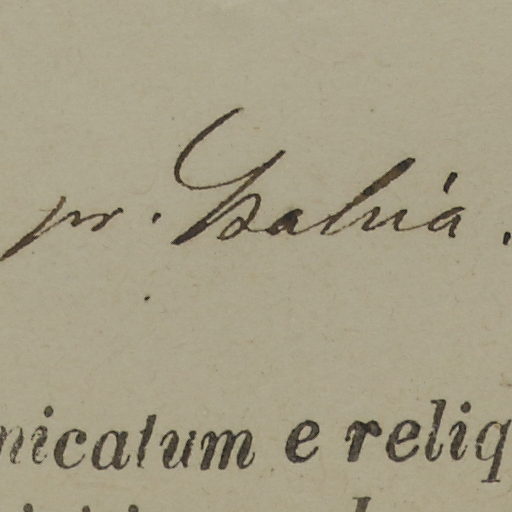 pr. Bahiá.
nicatum e reliq